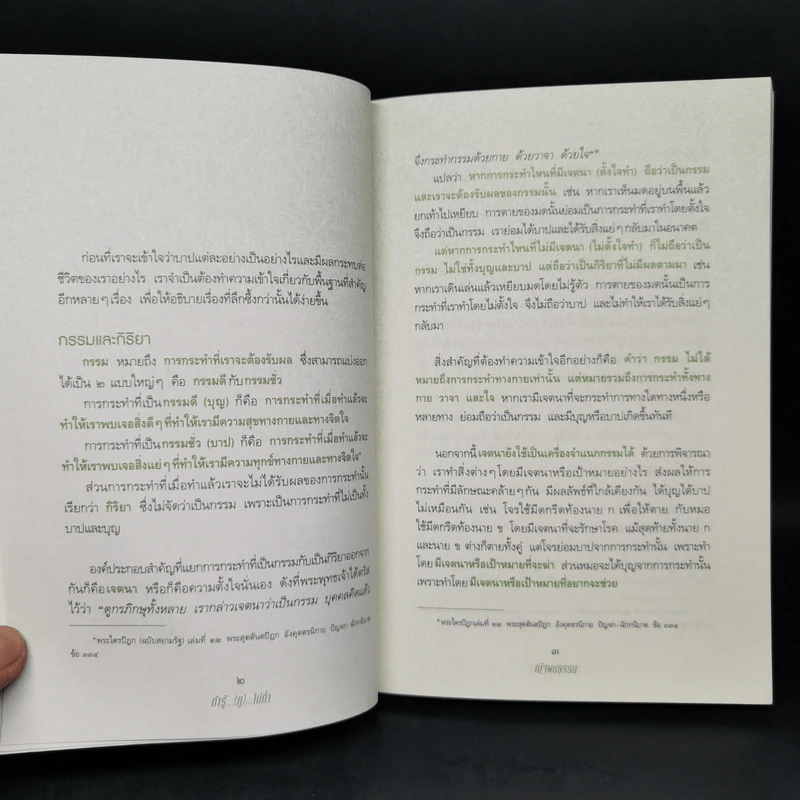 ก่อนที่เราจะเข้าใจว่าบาปแต่ละอย่างเป็นอย่างไรและมีผลกระทบต่อ
ชีวิตของเราอย่างไร เราจำเป็นต้องทำความเข้าใจเกี่ยวกับพื้นฐานที่สำคัญ
อีกหลายๆ เรื่อง เพื่อให้อธิบายเรื่องที่ลึกซึ้งกว่านั้นได้ง่ายขึ้น
กรรมและกิริยา
กรรม หมายถึง การกระทำที่เราจะต้องรับผล ซึ่งสามารถแบ่งออก
ได้เป็น ๒ แบบใหญ่ๆ คือ กรรมดีกับกรรมชั่ว
การกระทำที่เป็นกรรมดี (บุญ) ก็คือ การกระทำที่เมื่อทำแล้วจะ
ทำให้เราพบเจอสิ่งดีๆ ที่ทำให้เรามีความสุขทางกายและทางจิตใจ
การกระทำที่เป็นกรรมชั่ว (บาป) ก็คือ การกระทำที่เมื่อทำแล้วจะ
ทำให้เราพบเจอสิ่งแย่ๆ ที่ทำให้เรามีความทุกข์ทางกายและทางจิตใจ
ส่วนการกระทำที่เมื่อทำแล้วเราจะไม่ได้รับผลของการกระทำนั้น
เรียกว่า กิริยา ซึ่งไม่จัดว่าเป็นกรรม เพราะเป็นการกระทำที่ไม่เป็นทั้ง
บาปและบุญ
องค์ประกอบสำคัญที่แยกการกระทำที่เป็นกรรมกับเป็นกิริยาออกจาก
กันก็คือเจตนา หรือก็คือความตั้งใจนั่นเอง ดังที่พระพุทธเจ้าได้ตรัส
ไว้ว่า "ดูกรภิกษุทั้งหลาย เรากล่าวเจตนาว่าเป็นกรรม บุคคลคิดแล้ว
*พระไตรปิฎก (ฉบับสยามรัฐ) เล่มที่ ๒๒ พระสุตตันตปิฎก อังคุตตรนิกาย ปัญจก-ฉักกนิบาต
ข้อ ๓๓๔
๒
ถ้ารู้...(กู)...ไม่ทำ
จึงกระทำกรรมด้วยกาย ด้วยวาจา ด้วยใจ"*
แปลว่า หากการกระทำไหนที่มีเจตนา (ตั้งใจทำ) ถือว่าเป็นกรรม
และเราจะต้องรับผลของกรรมนั้น เช่น หากเราเห็นมดอยู่บนพื้นแล้ว
ยกเท้าไปเหยียบ การตายของมดนั้นย่อมเป็นการกระทำที่เราทำโดยตั้งใจ
จึงถือว่าเป็นกรรม เราย่อมได้บาปและได้รับสิ่งแย่ๆ กลับมาในอนาคต
แต่หากการกระทำไหนที่ไม่มีเจตนา (ไม่ตั้งใจทำ) ก็ไม่ถือว่าเป็น
กรรม ไม่ใช่ทั้งบุญและบาป แต่ถือว่าเป็นกิริยาที่ไม่มีผลตามมา เช่น
หากเราเดินเล่นแล้วเหยียบมดโดยไม่รู้ตัว การตายของมดนั้นเป็นการ
กระทำที่เราทำโดยไม่ตั้งใจ จึงไม่ถือว่าบาป และไม่ทำให้เราได้รับสิ่งแย่ๆ
กลับมา
สิ่งสำคัญที่ต้องทำความเข้าใจอีกอย่างก็คือ คำว่า กรรม ไม่ได้
หมายถึงการกระทำทางกายเท่านั้น แต่หมายรวมถึงการกระทำทั้งทาง
กาย วาจา และใจ หากเรามีเจตนาที่จะกระทำการทางใดทางหนึ่งหรือ
หลายทาง ย่อมถือว่าเป็นกรรม และมีบุญหรือบาปเกิดขึ้นทันที
นอกจากนี้เจตนายังใช้เป็นเครื่องจำแนกกรรมได้ ด้วยการพิจารณา
ว่า เราทำสิ่งต่างๆ โดยมีเจตนาหรือเป้าหมายอย่างไร ส่งผลให้การ
กระทำที่มีลักษณะคล้ายๆ กัน มีผลลัพธ์ที่ใกล้เคียงกัน ได้บุญได้บาป
ไม่เหมือนกัน เช่น โจรใช้มีดกรีดท้องนาย ก เพื่อให้ตาย กับหมอ
ใช้มีดกรีดท้องนาย ข โดยมีเจตนาที่จะรักษาโรค แม้สุดท้ายทั้งนาย ก
และนาย ข ต่างก็ตายทั้งคู่ แต่โจรย่อมบาปจากการกระทำนั้น เพราะทำ
โดย มีเจตนาหรือเป้าหมายที่จะฆ่า ส่วนหมอจะได้บุญจากการกระทำนั้น
เพราะทำโดย มีเจตนาหรือเป้าหมายที่อยากจะช่วย
*พระไตรปิฎกเล่มที่ ๒๒ พระสุตตันตปิฎก อังคุตตรนิกาย ปัญจก-ฉักกนิบาต ข้อ ๓๓๔
๓